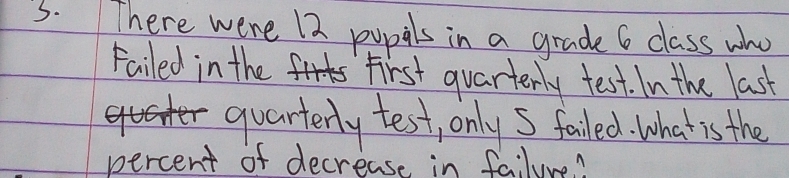 3. There were 12 pupils in a grade 6 class who
Failed in the firts First quarterly test. In the last
quarter quarterly test, only 5 failed. What is the
percent of decrease in failure?